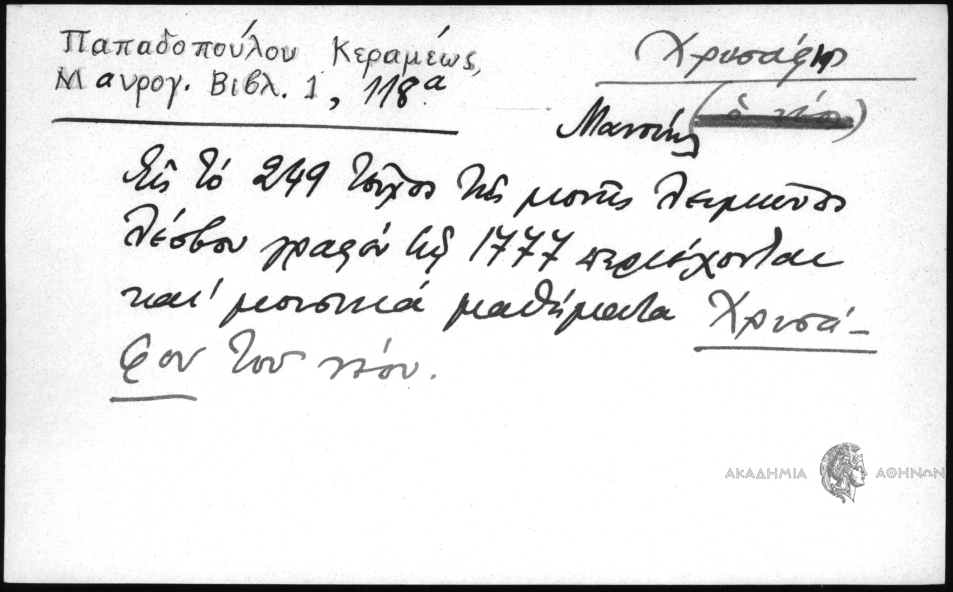 Παπαδοπούλου Κεραμέως,
Μαυρογ. Βιβλ. 1, 118α
Χρυσάφης
Μανουήλ (ὁ νέος)
Εἰς τὸ 249 τεῦχος τῆς μονῆς Λειμῶνος
Λέσβου γραφὲν τῷ 1777 περιέχονται
καὶ μουσικά μαθήματα Χρυσά-
φου τοῦ νέου.
ΑΚΑΔΗΜΙΑ ΑΘΗΝΩΝ